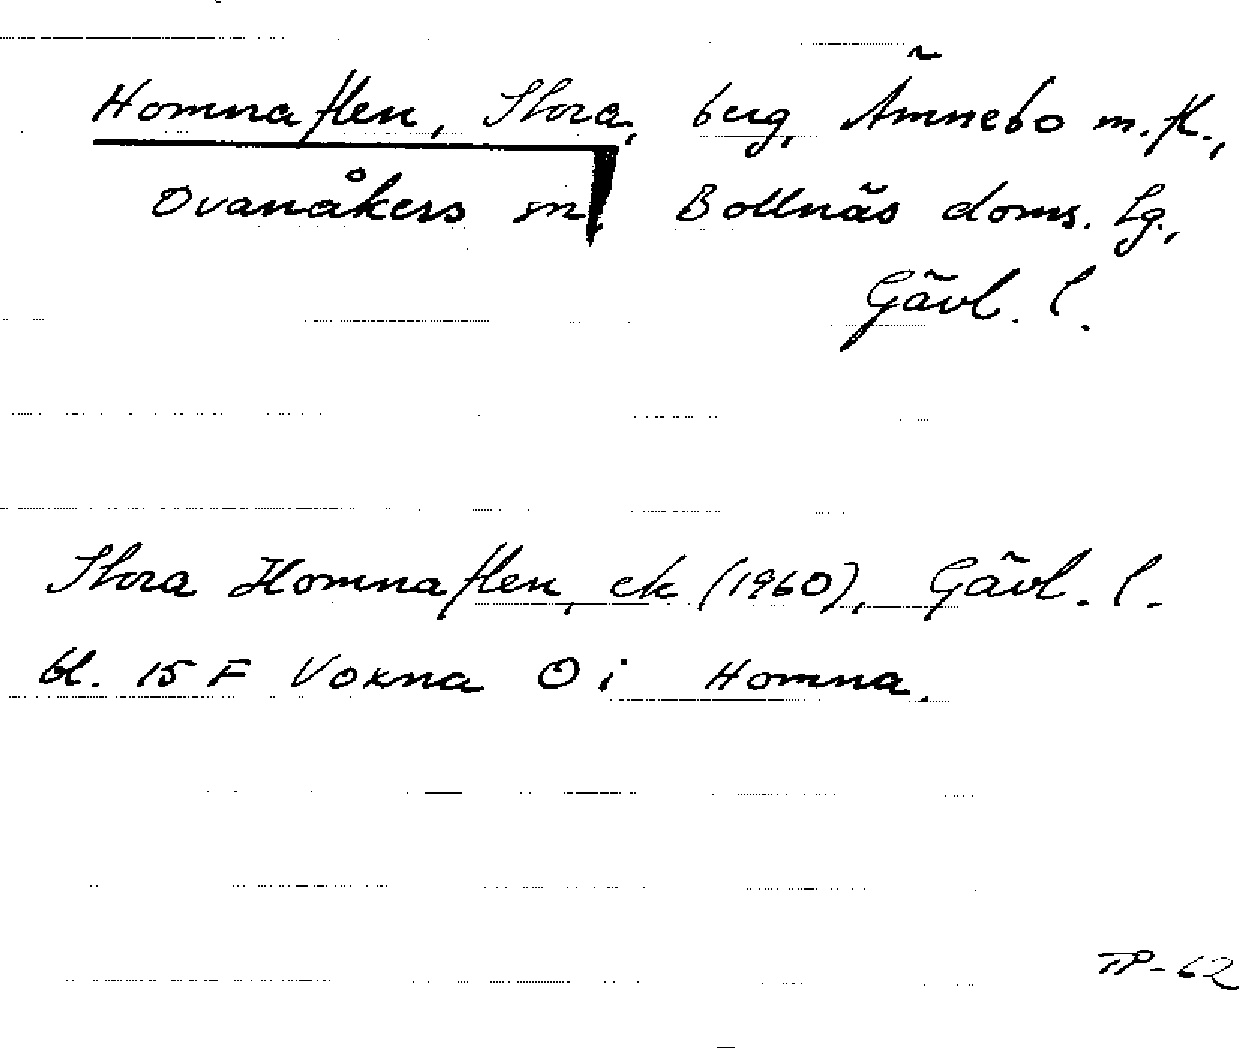 Homnaflen, Stora, berg, Ämnebo m.fl.,
Ovanåkers sn, Bollnäs doms. Lg.,
Gävl. l.
Stora Homnaflen, ek (1960), Gävl. l.
bl. 15 F Voxna O i Homna.
TP-62